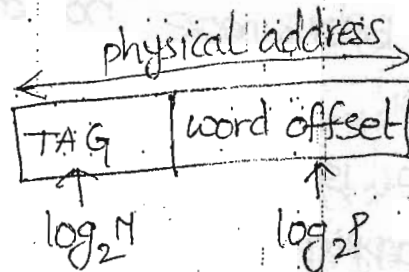 physical address
TAG word offset
log₂M log₂P